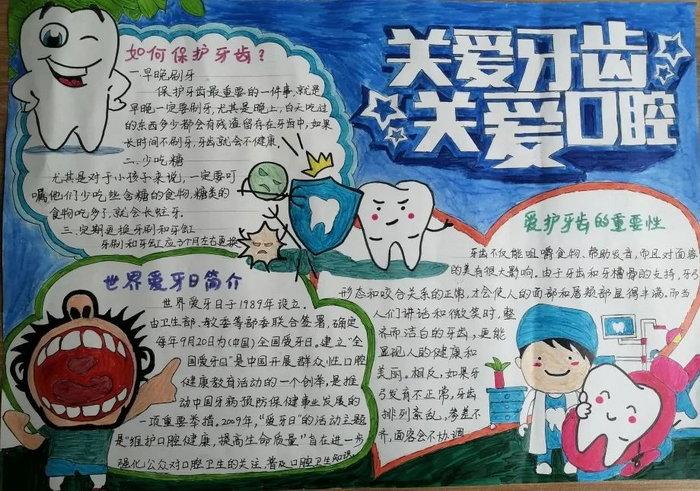 关爱牙齿
关爱口腔
如何保护牙齿？
一早晚刷牙
保护牙齿最重要的一件事,就是
早晚一定要刷牙,尤其是晚上,白天吃过
的东西多少都会有残渣留存在牙齿中,如果
长时间不刷牙,牙齿就会不健康.
二、少吃糖
尤其是对于小孩子来说,一定要叮
嘱他们少吃些含糖的食物,糖类的
食物吃多了,就会长蛀牙.
三、定期更换牙刷与牙缸
牙刷和牙缸应个月左右更换
世界爱牙日简介
世界爱牙日于1989年设立,
由卫生部、教委等部委联合签署,确定
每年9月20日为(中国)全国爱牙日。建立“全
国爱牙日”是中国开展群众性口腔
健康教育活动的一个创举,是推
动中国牙病预防保健事业发展的
一项重要举措.2009年,“爱牙日”的活动主题
是“维护口腔健康,提高生命质量”旨在进一步
强化公众对口腔卫生的关注,普及口腔卫生知识
爱护牙齿的重要性
牙齿不仅能咀嚼食物、帮助发音,而且对面容
的美有很大影响。由于牙齿和牙槽骨的支持,牙弓
形态和咬合关系的正常,才会使人的面部和唇颊部显得丰满。而当
人们讲话和微笑时,整
齐而洁白的牙齿,更能
显现人的健康和
美丽。相反,如果牙
弓发育不正常,牙齿
排列紊乱,参差不
齐,面容会不协调